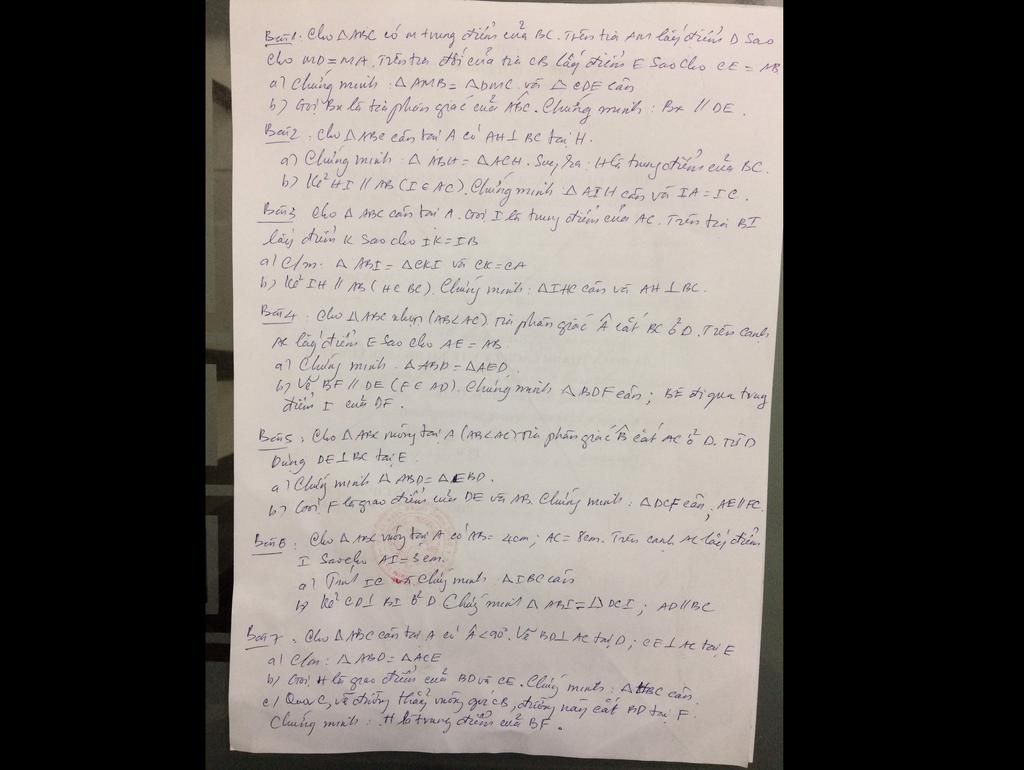 Bài 1. Cho △ABC có M trung điểm của BC. Trên tia AM lấy điểm D sao
cho MD = MA. Trên tia đối của tia CB lấy điểm E sao cho CE = AB
a) Chứng minh : △AMB = △DMC và △CDE cân
b) Gọi Bx là tia phân giác của ABC. Chứng minh : Bx // DE.
Bài 2. Cho △ABC cân tại A có AH ⊥ BC tại H.
a) Chứng minh : △ABH = △ACH. Suy ra : H là trung điểm của BC.
b) Kẻ HI // AB (I ∈ AC). Chứng minh △AIH cân và IA = IC.
Bài 3 Cho △ABC cân tại A. Gọi I là trung điểm của AC. Trên tia BI
lấy điểm K sao cho IK = IB
a) C/m. △ABI = △CKI và CK = CA
b) Kẻ IH // AB (H ∈ BC). Chứng minh : △IHC cân và AH ⊥ BC.
Bài 4. Cho △ABC nhọn (AB < AC). Tia phân giác Â cắt BC ở D. Trên cạnh
AC lấy điểm E sao cho AE = AB.
a) Chứng minh : △ABD = △AED.
b) Vẽ BF // DE (F ∈ AD). Chứng minh △BDF cân ; BE đi qua trung
điểm I của DF.
Bài 5 : Cho △ABC vuông tại A (AB < AC) Tia phân giác B̂ cắt AC ở D. Từ D
Dựng DE ⊥ BC tại E.
a) Chứng minh △ABD = △EBD.
b) Gọi F là giao điểm của DE và AB. Chứng minh : △DCF cân ; AE // FC.
Bài 6 : Cho △ABC vuông tại A có AB = 4cm ; AC = 8cm. Trên cạnh AC lấy điểm
I sao cho AI = 3cm.
a) Tính IC và Chứng minh △IBC cân
b) Kẻ CD ⊥ BI ở D Chứng minh △ABI = △DCI ; AD // BC
Bài 7 : Cho △ABC cân tại A có Â < 90°. Vẽ BD ⊥ AC tại D ; CE ⊥ AC tại E
a) C/m : △ABD = △ACE
b) Gọi H là giao điểm của BD và CE. Chứng minh : △HBC cân
c) Qua C, vẽ đường thẳng vuông góc CB, đường này cắt BD tại F.
Chứng minh : H là trung điểm của BF.